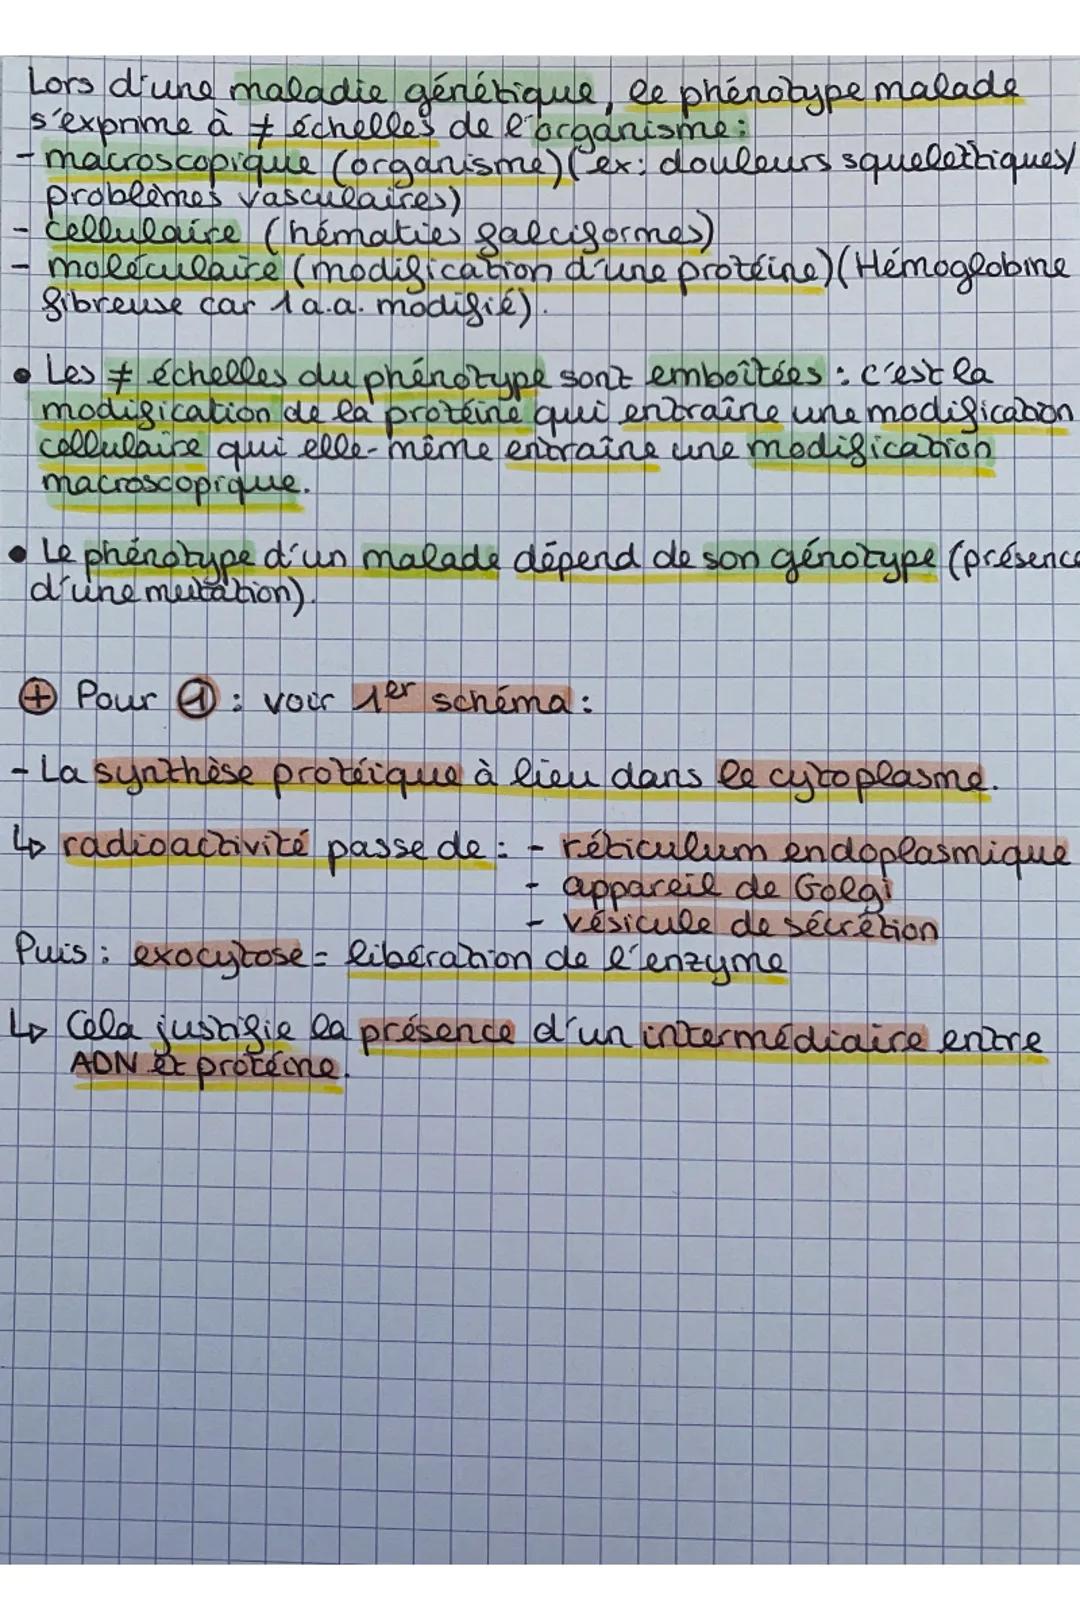 Lors d'une maladie génétique, le phénotype malade
s'exprime à ≠ échelles de l'organisme :
- macroscopique (organisme) (ex : douleurs squelettiques/
problèmes vasculaires)
- cellulaire (hématies falciformes)
- moléculaire (modification d'une protéine) (Hémoglobine
fibreuse car 1 a.a. modifié).
• Les ≠ échelles du phénotype sont emboîtées : c'est la
modification de la protéine qui entraîne une modification
cellulaire qui elle-même entraîne une modification
macroscopique.
• Le phénotype d'un malade dépend de son génotype (présence
d'une mutation).
⊕ Pour ① : voir 1er schéma :
- La synthèse protéique à lieu dans le cytoplasme.
↳ radioactivité passe de : - réticulum endoplasmique
- appareil de Golgi
- vésicule de sécrétion
Puis : exocytose = libération de l'enzyme
↳ Cela justifie la présence d'un intermédiaire entre
ADN et protéine.